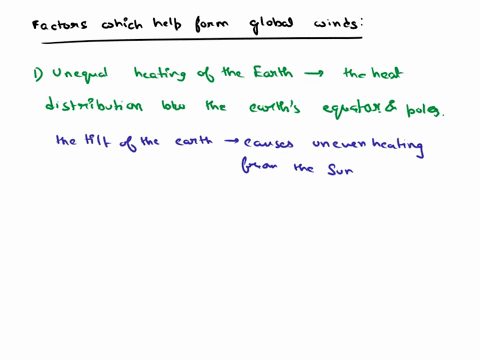 Factors which help form global winds:
1) Unequal heating of the Earth → the heat
distribution b/w the earth's equator & poles.
the tilt of the earth → causes uneven heating
from the Sun